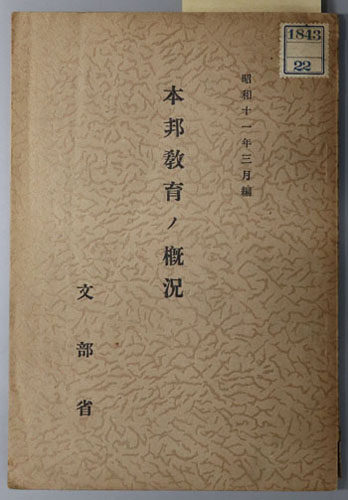 1843
22
昭和十一年三月編
本邦敎育ノ概況
文部省